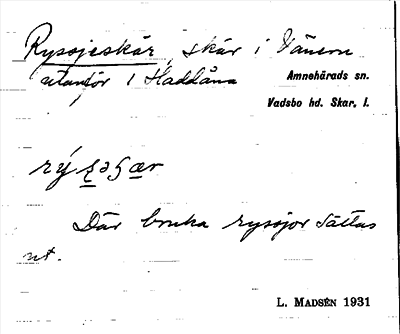 Rysojeskär, skär i Vänern
utanför 1 Haddåna
Amnehärads sn.
Vadsbo hd. Skar. l.
Där bruka rysojor sättas
ut.
L. MADSÉN 1931